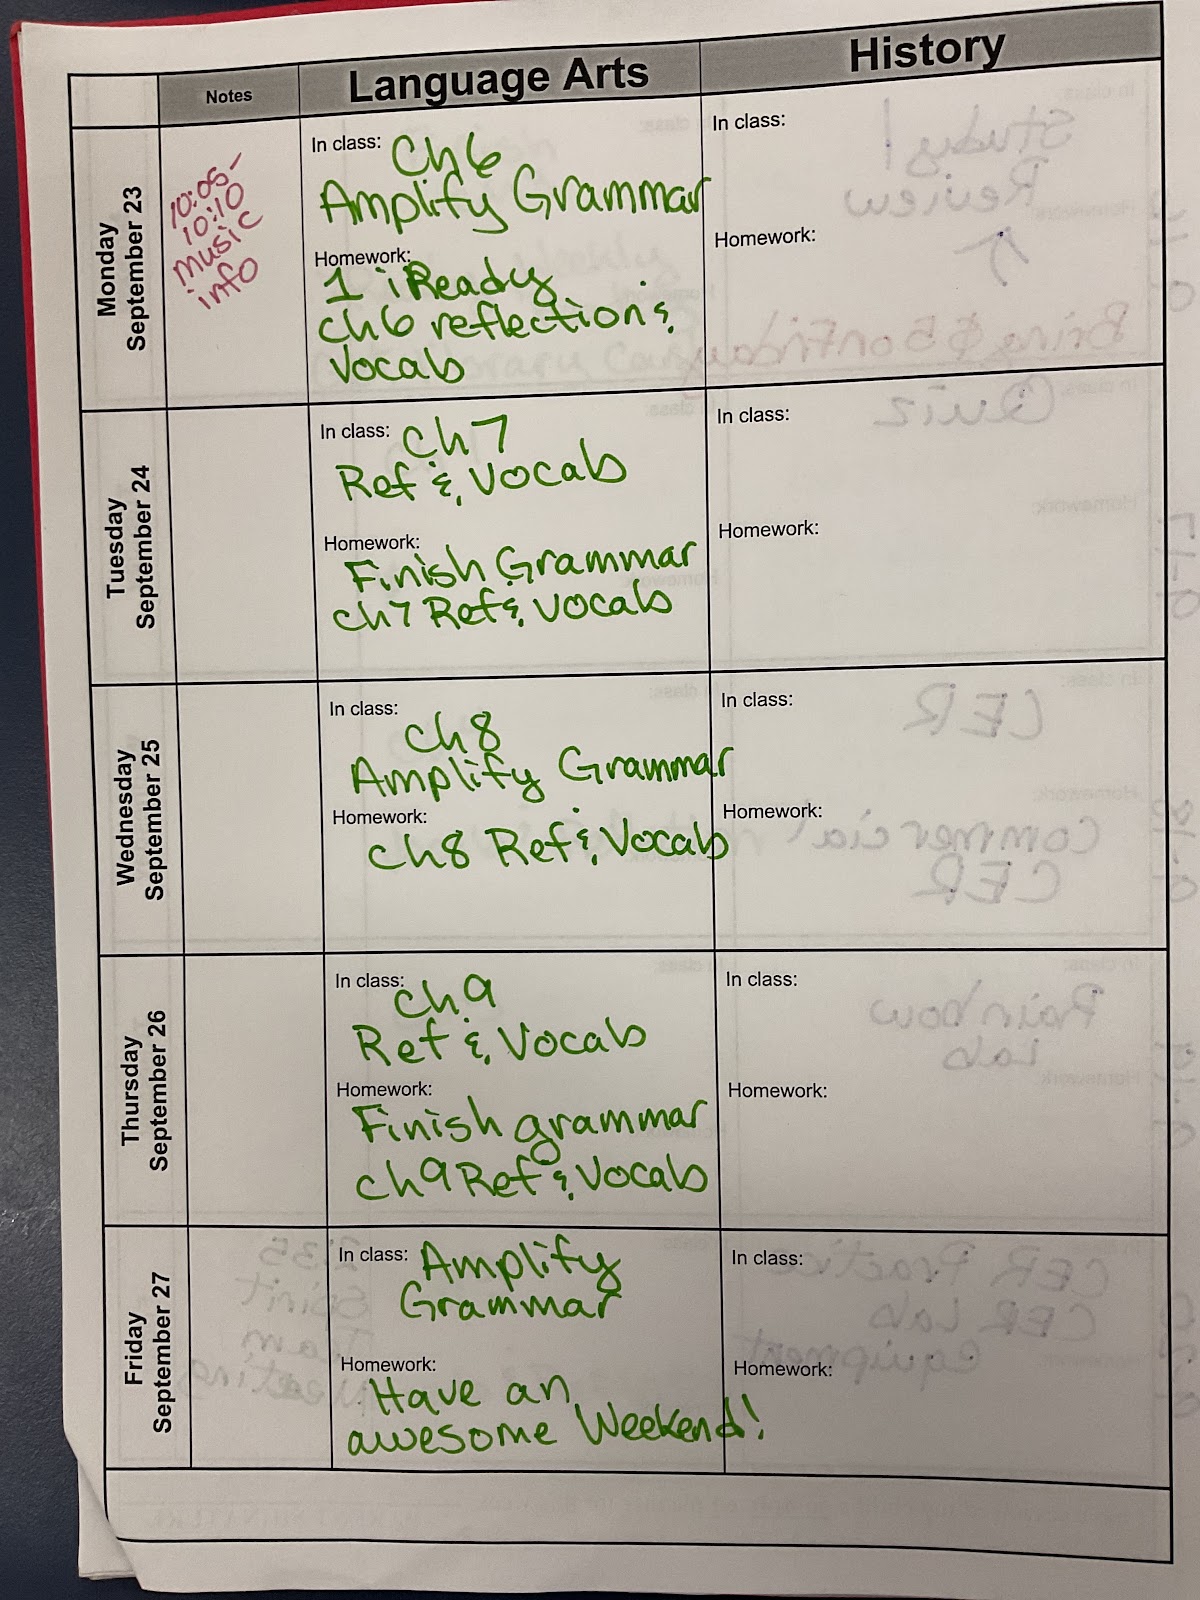 Notes
Language Arts
History
Monday
September 23
10:05-
10:10
music
info
In class: Ch 6
Amplify Grammar
Homework:
1 iReady
ch6 reflection &
Vocab
In class:
Homework:
Tuesday
September 24
In class: Ch 7
Ref & Vocab
Homework:
Finish Grammar
ch7 Ref & Vocab
In class:
Homework:
Wednesday
September 25
In class:
Ch 8
Amplify Grammar
Homework:
ch8 Ref & Vocab
In class:
Homework:
Thursday
September 26
In class:
Ch 9
Ref & Vocab
Homework:
Finish grammar
ch9 Ref & Vocab
In class:
Homework:
Friday
September 27
In class: Amplify
Grammar
Homework:
Have an
awesome Weekend!
In class:
Homework: